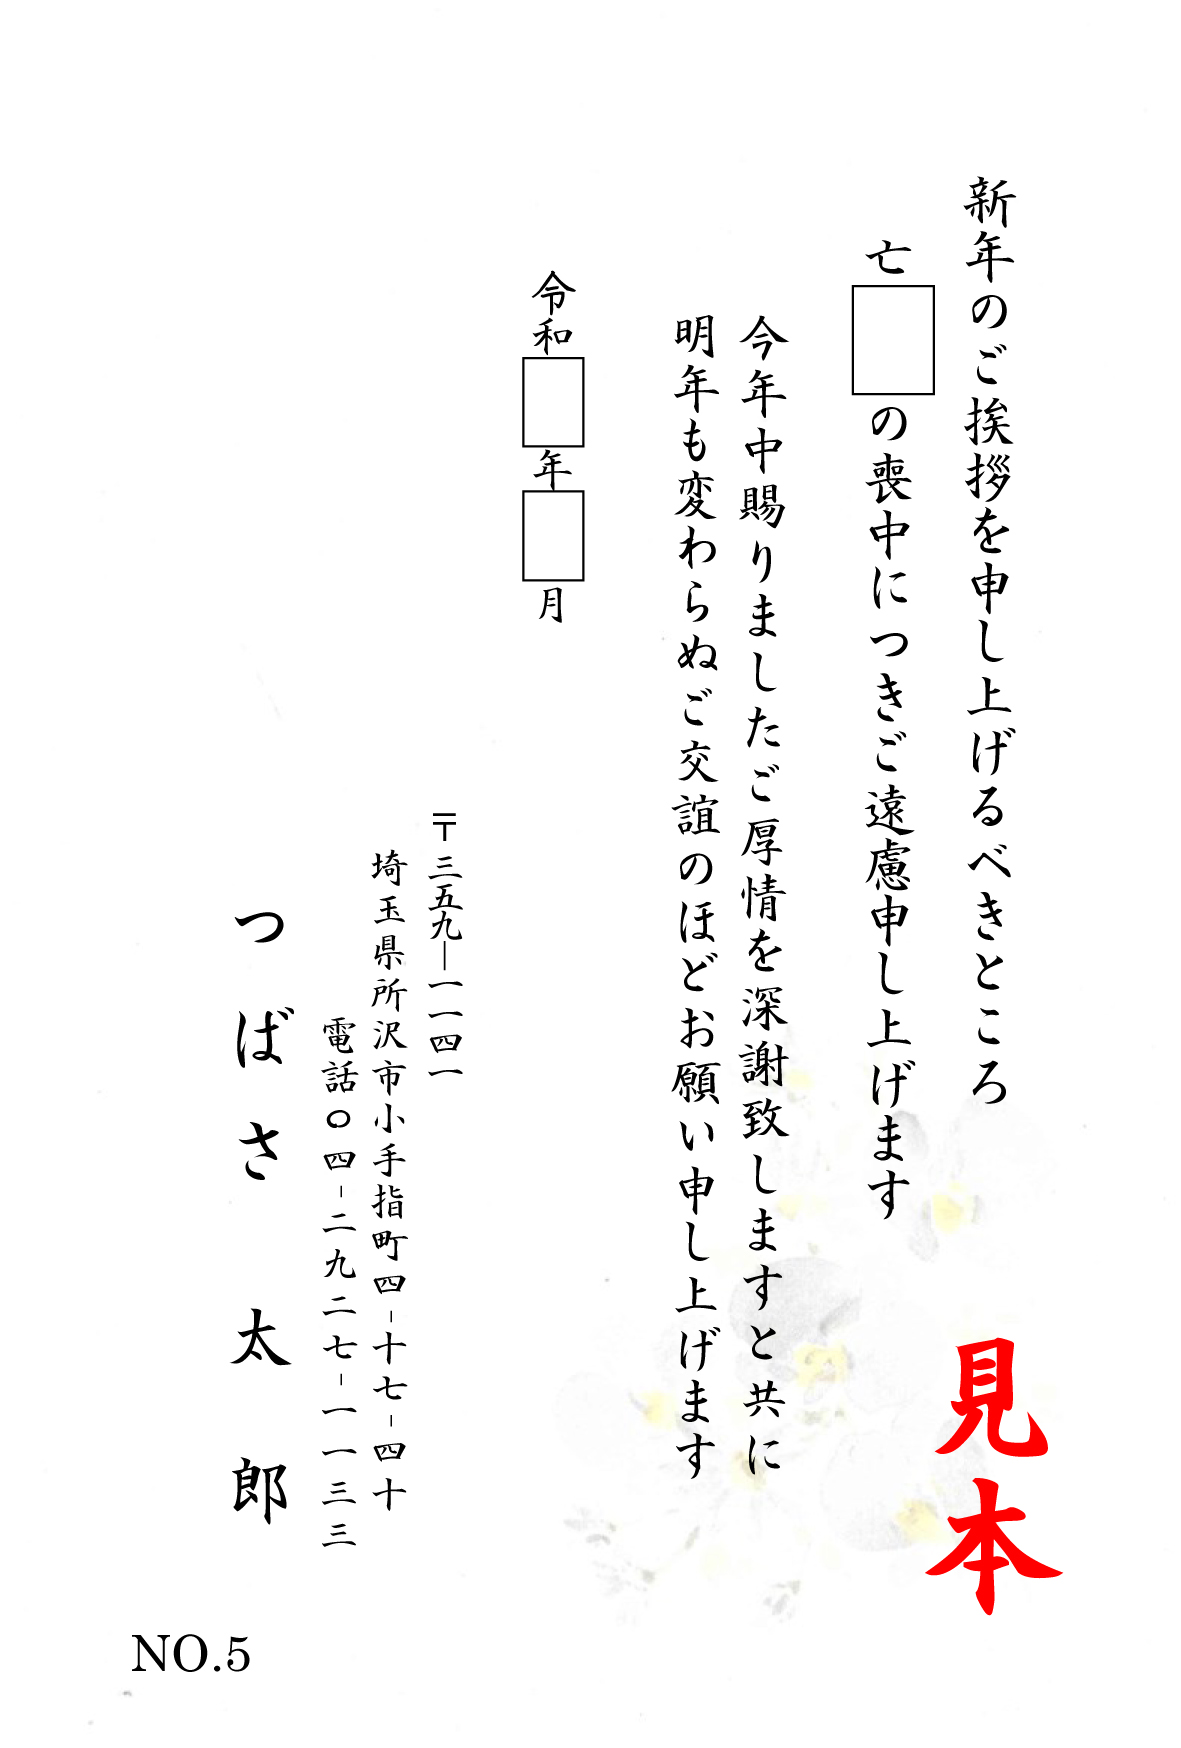 新年のご挨拶を申し上げるべきところ
亡□の喪中につきご遠慮申し上げます
今年中賜りましたご厚情を深謝致しますと共に
明年も変わらぬご交誼のほどお願い申し上げます
令和□年□月
〒三五九―一一四一
埼玉県所沢市小手指町四-十七-四十
電話〇四-二九二七-一一三三
つばさ 太郎
見本
NO.5